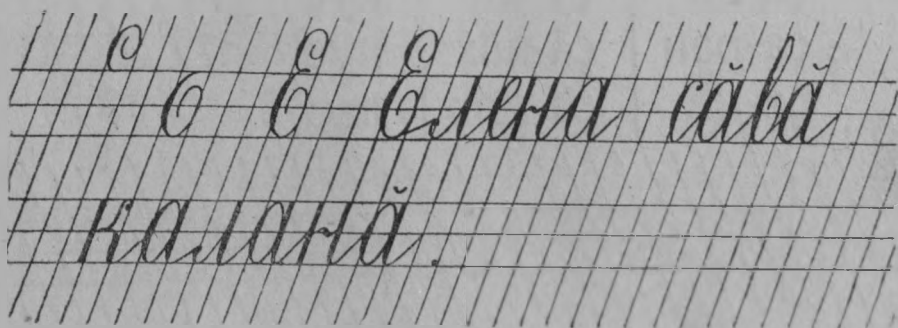 Е Елена сӑвӑ
каланӑ.